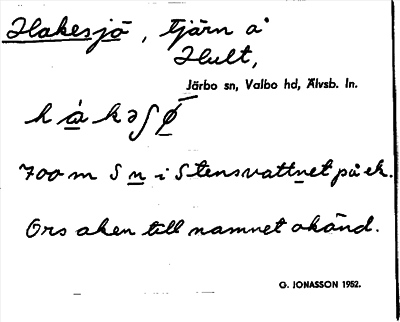 Hakesjö, tjärn å
Hult,
Järbo sn, Valbo hd, Älvsb. ln.
700 m S n i Stensvattnet på ek.
Orsaken till namnet okänd.
G. JONASSON 1952.